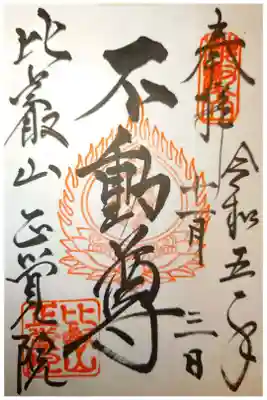 奉拝
令和五年
十一月三日
不動尊
比叡山 正覚院